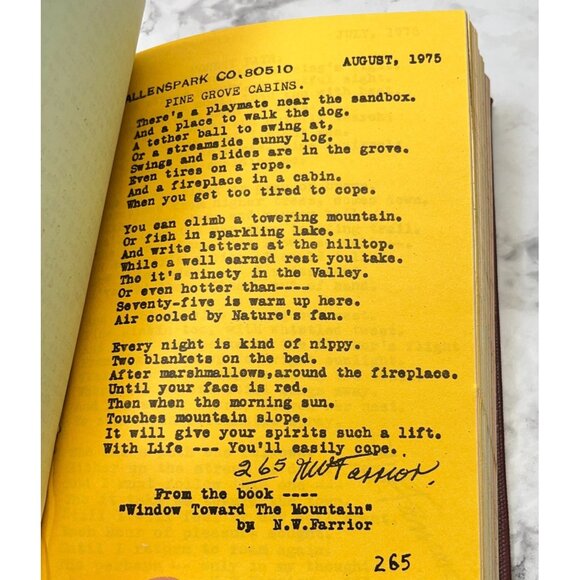 JULY, 1975
ALLENSPARK CO.80510
AUGUST, 1975
PINE GROVE CABINS.
There's a playmate near the sandbox.
And a place to walk the dog.
A tether ball to swing at,
Or a streamside sunny log.
Swings and slides are in the grove.
Even tires on a rope.
And a fireplace in a cabin.
When you get too tired to cope.
You can climb a towering mountain.
Or fish in sparkling lake.
And write letters at the hilltop.
While a well earned rest you take.
Tho it's ninety in the Valley.
Or even hotter than----
Seventy-five is warm up here.
Air cooled by Nature's fan.
Every night is kind of nippy.
Two blankets on the bed.
After marshmallows,around the fireplace.
Until your face is red.
Then when the morning sun.
Touches mountain slope.
It will give your spirits such a lift.
With Life --- You'll easily cope.
265 NW Farrior.
From the book ----
"Window Toward The Mountain"
by N.W.Farrior
265